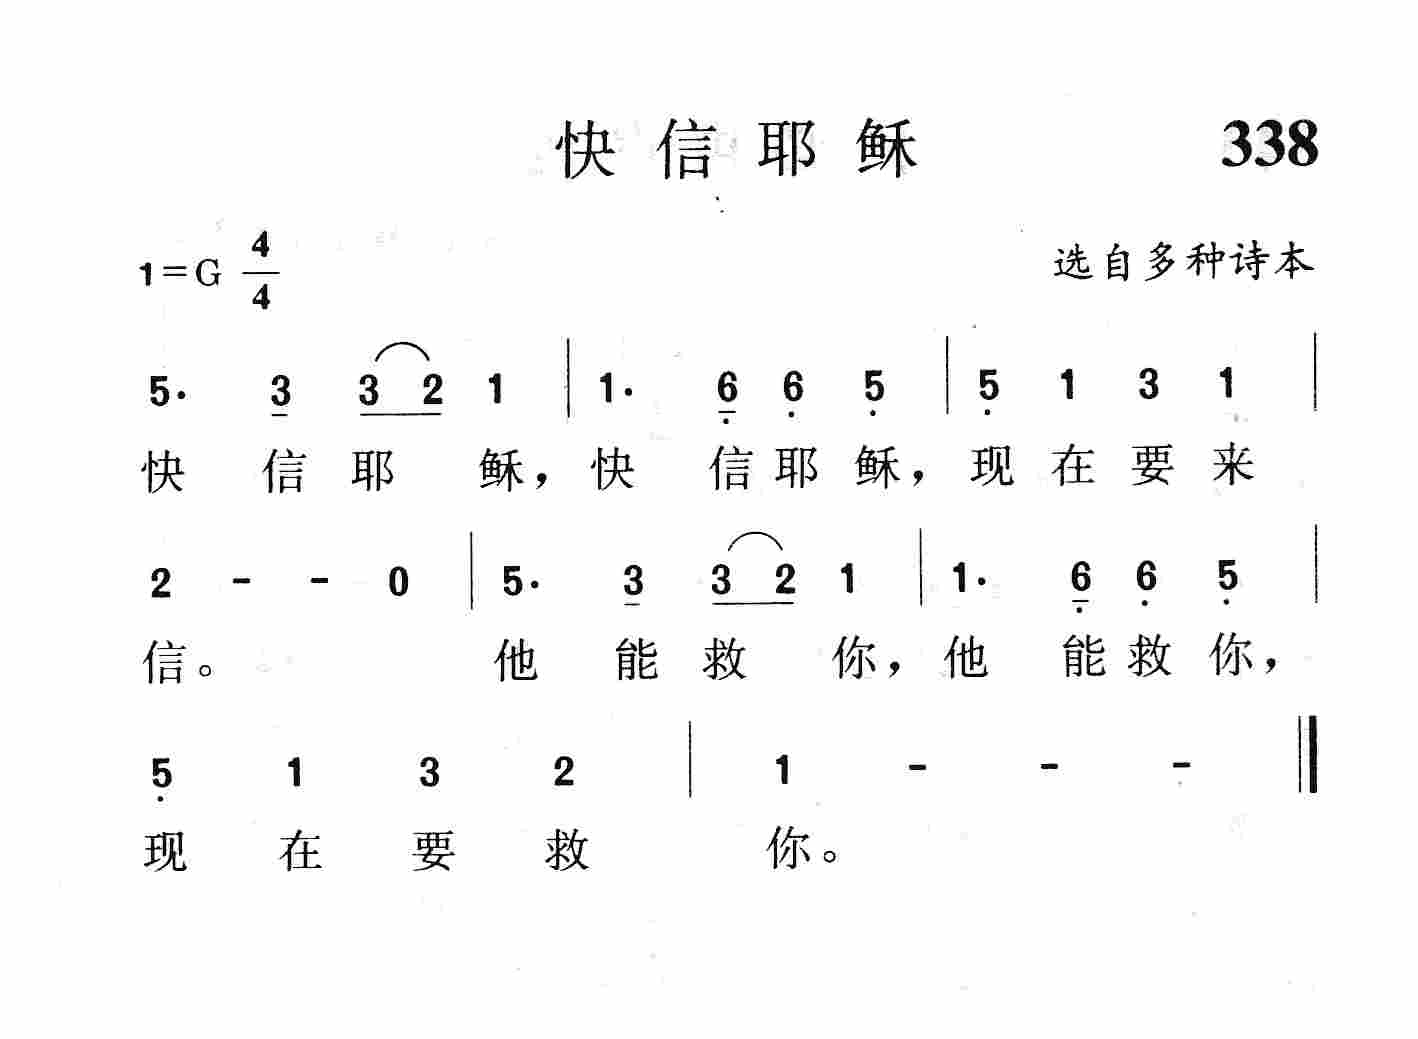 快信耶稣 338
1=G 4/4 选自多种诗本
5· 3 3 2 1 | 1· 6 6 5 | 5 1 3 1 |
快 信 耶 稣，快 信 耶 稣，现 在 要 来
2 - - 0 | 5· 3 3 2 1 | 1· 6 6 5 |
信。 他 能 救 你，他 能 救 你，
5 1 3 2 | 1 - - - ‖
现 在 要 救 你。